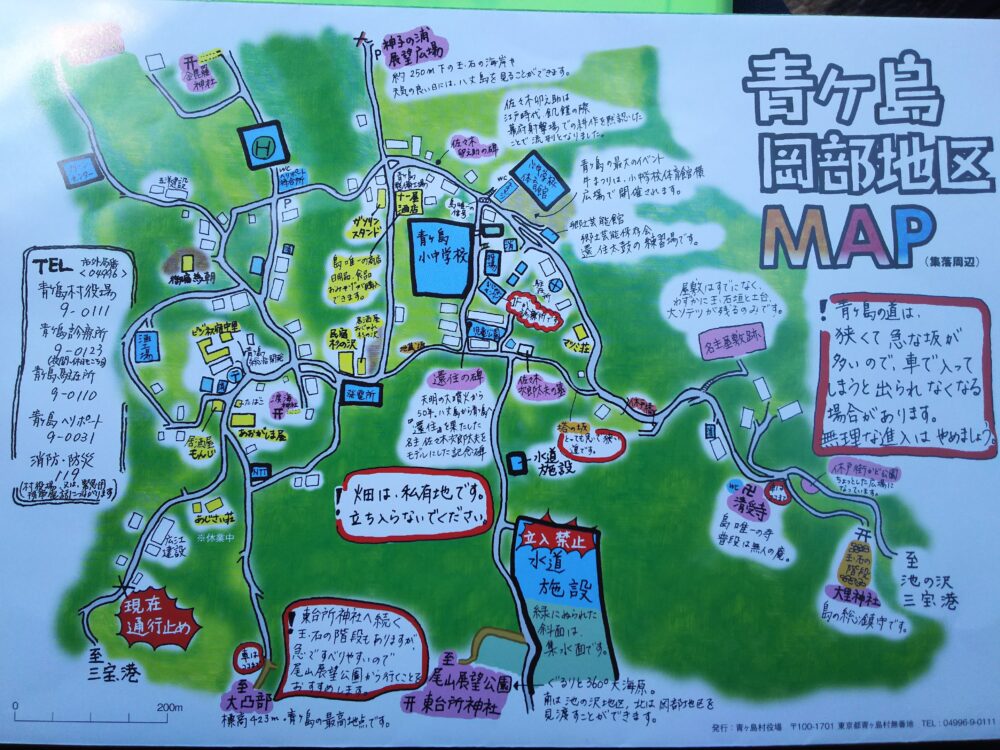 青ケ島
岡部地区
MAP
(集落周辺)
神子の浦
展望広場
P
約250m下の玉石の海岸や
天気の良い日には、八丈島を見ることができます。
金毘羅
神社
H
WC
ヘリポート
待合所
P
佐々木
卯之助の碑
佐々木卯之助は
江戸時代、飢饉の際
幕府射撃場での耕作を黙認した
ことで流刑となりました。
青ヶ島の最大のイベント
牛まつりは、小中学校体育館横
広場で開催されます。
WC
小中学校
体育館
郷土芸能館
郷土芸能保存会
還住太鼓の練習場です。
ガソリン
スタンド
十一屋
酒店
島唯一の
信号
青ヶ島
小中学校
島唯一の商店
日用品、食品
おみやげが購入
できます。
民宿
杉の沢
発電所
児童公園
駐在所
マツミ荘
TEL
市外局番
<04996>
青ヶ島村役場
9-0111
青ヶ島診療所
9-0123
青ヶ島駐在所
9-0110
青ヶ島ヘリポート
9-0031
消防・防災
119
ビジネス宿中里
青ヶ島
総合開発
たばこ
渡海
神社
居酒屋
もんじ
あおがしま屋
NTT
あじさい荘
※休業中
広江
建設
現在
通行止め
至
三宝港
還住の碑
天明の大噴火から
50年、八丈島から青ヶ島へ
還住を果たした
名主 佐々木次郎太夫を
モデルにした記念碑
佐々木
次郎太夫の墓
塔の坂
とっても急で狭い
道です。
水道
施設
!
畑は、私有地です。
立ち入らないでください。
立入禁止
水道
施設
緑にぬられた
斜面は、
集水面です。
屋敷はすでになく、
わずかに玉石垣と土台、
大ソテツが残るのみです。
名主屋敷跡
!
青ヶ島の道は、
狭くて急な坂が
多いので、車で入って
しまうと出られなくなる
場合があります。
無理な進入はやめましょう。
休戸街かど公園
ちょっとした広場に
なっています。
WC
卍
清受寺
島唯一の寺
普段は無人の庵。
玉石の
階段
大里神社
島の総鎮守です。
至
池の沢
三宝港
!
東台所神社へ続く
玉石の階段もありますが、
急ですべりやすいので
尾山展望公園から行くことを
おすすめします。
至
大凸部
標高423m・青ヶ島の最高地点です。
至
尾山展望公園
東台所神社
ぐるりと360°大海原。
南は池の沢地区、北は岡部地区を
見渡すことができます。
0
200m
発行:青ヶ島村役場 〒100-1701 東京都青ヶ島村無番地 TEL:04996-9-0111